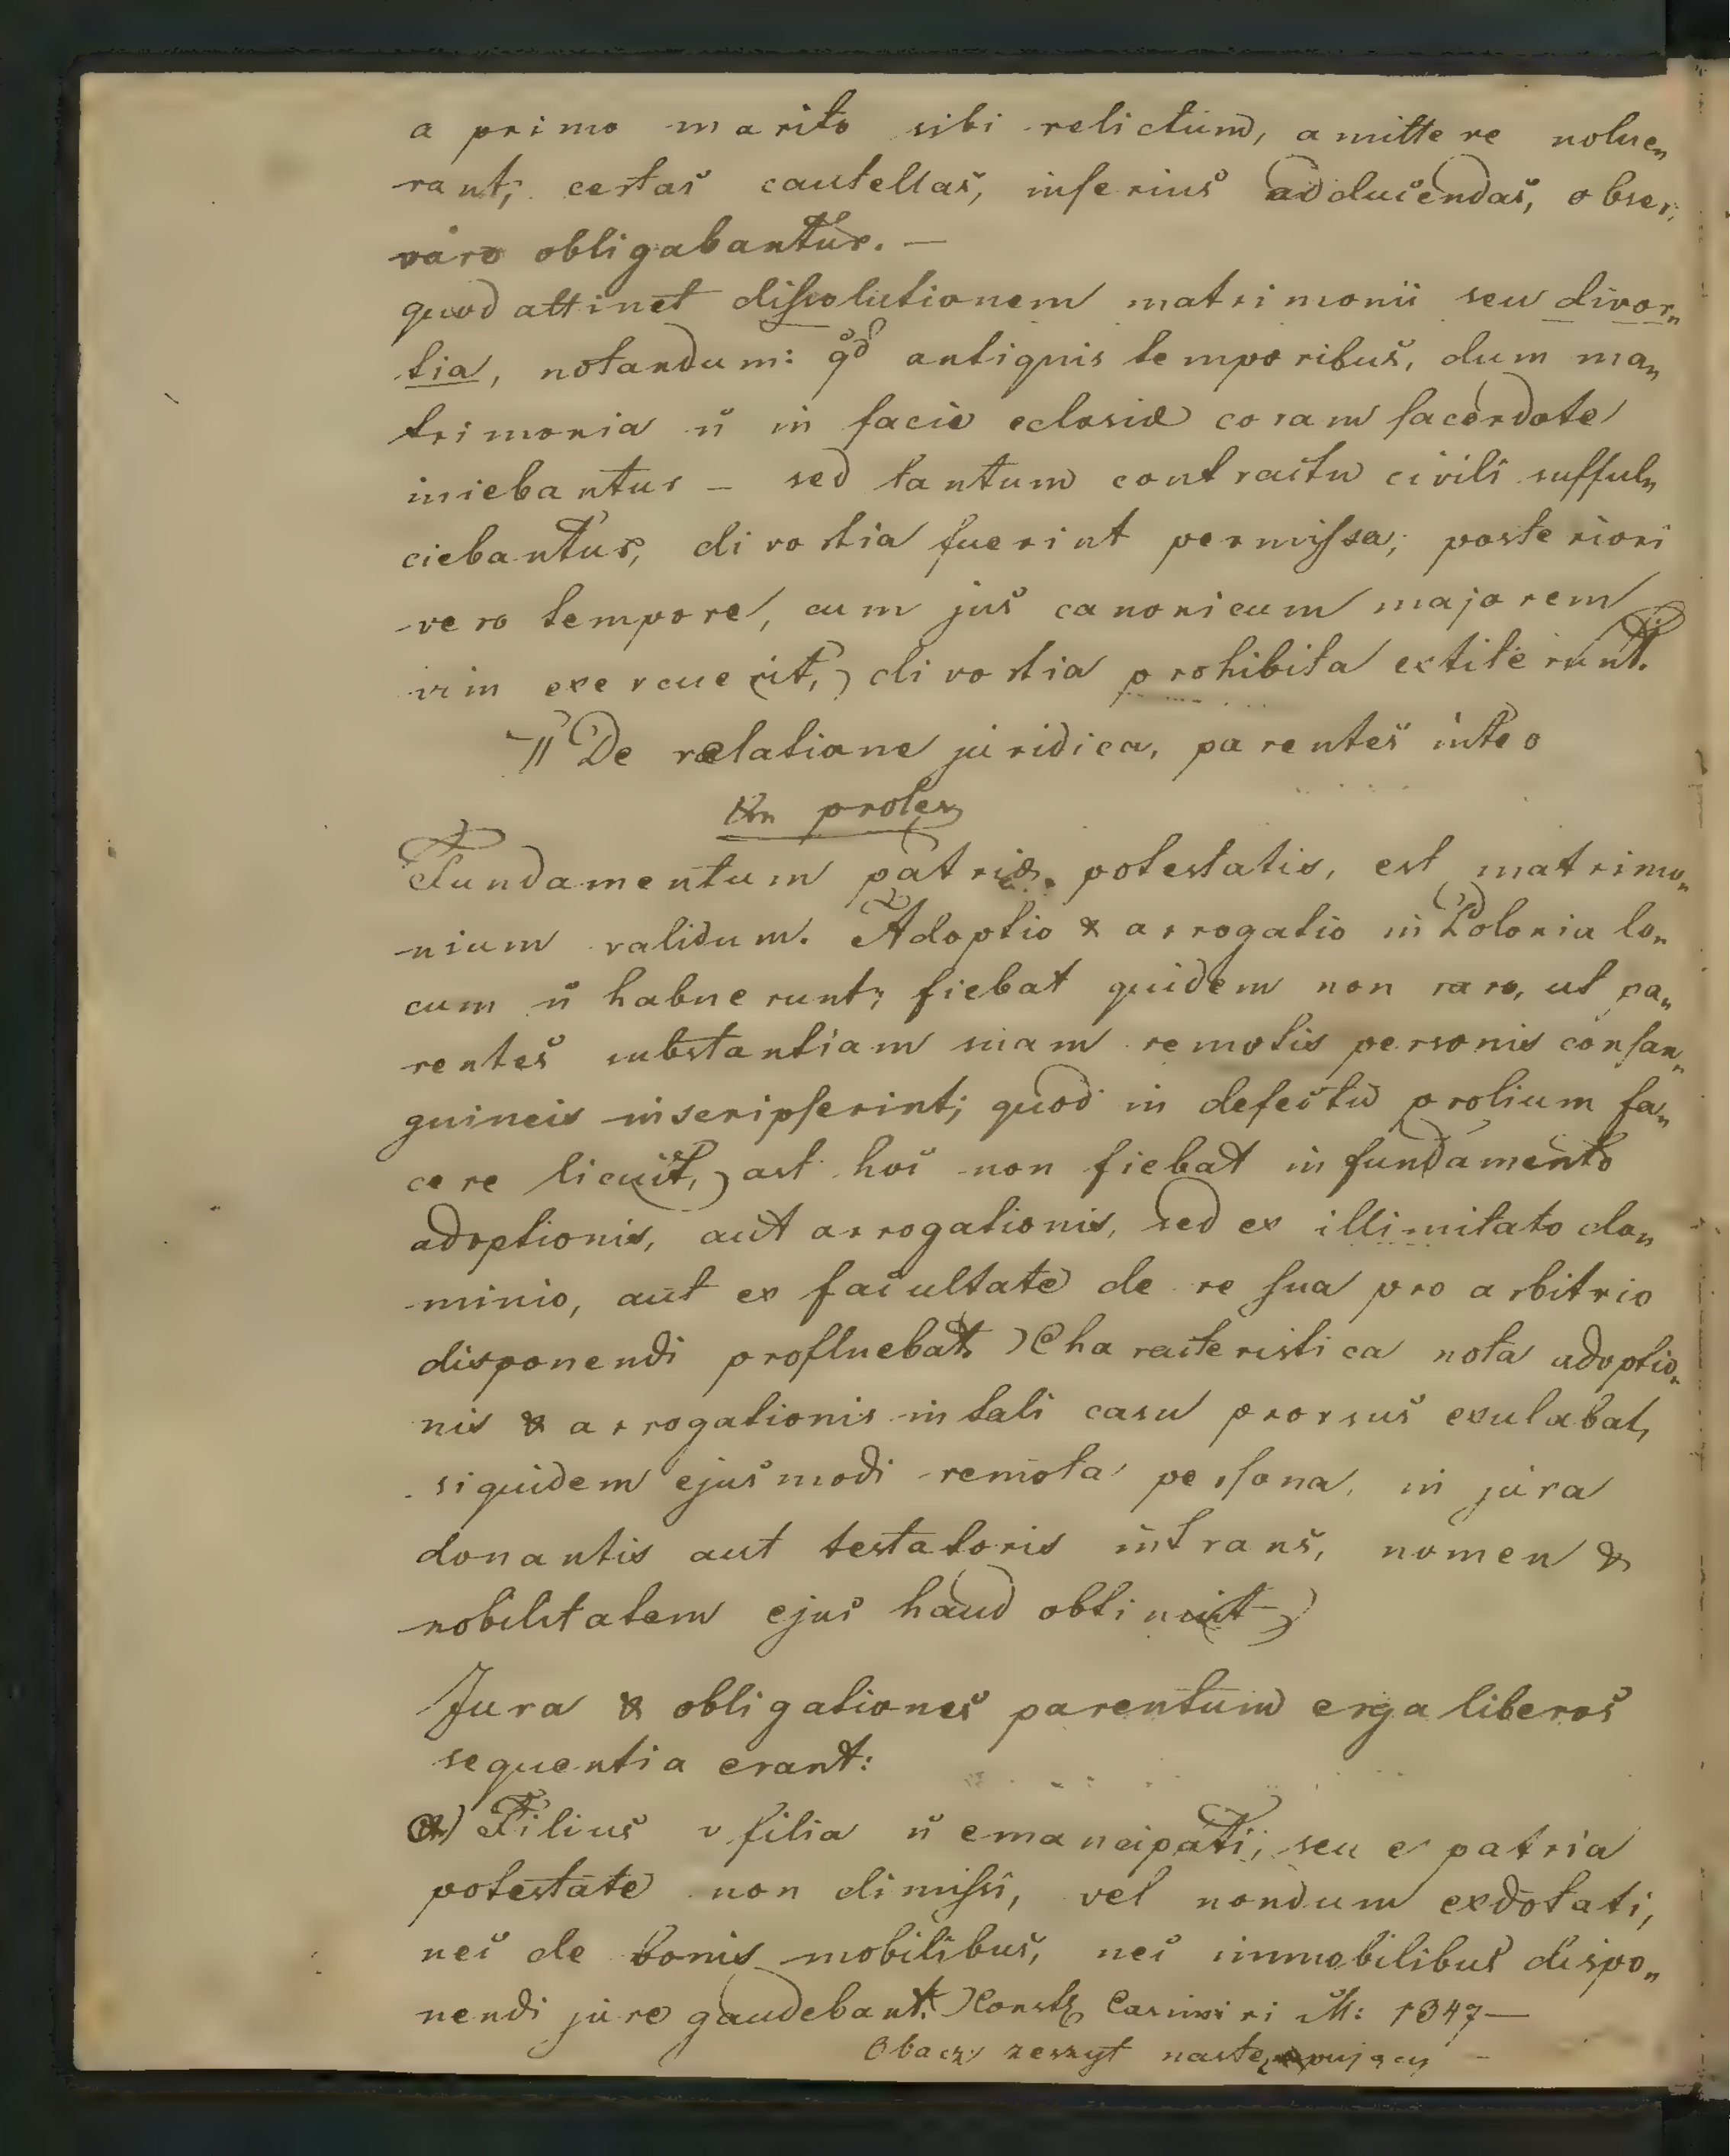 a primo marito sibi relictum, amittere nolue„
rant; certas cautellas, inferius adducendas, obser„
vare obligabantur. —
quod attinet dissolutionem matrimonii seu divor„
tia, notandum: qd antiquis temporibus, dum ma„
trimonia n̄ in facie eclesiæ coram sacerdote
iniebantur – sed tantum contractu civili sufful„
ciebantur, divortia fuerint permissa; posteriori
vero tempore, cum jus canonicum majorem
vim exercuerit, divortia prohibita extiterunt.
II De relatione juridica, parentes inter
& proles
Fundamentum patriæ potestatis, est matrimo„
nium validum. Adoptio & arrogatio in Polonia lo„
cum n̄ habuerunt; fiebat quidem non raro, ut pa„
rentes substantiam suam remotis personis consan„
guineis inscripserint; quod in defectu prolium fa„
cere licuit, ast hoc non fiebat in fundamento
adoptionis, aut arrogationis, sed ex illimitato do„
minio, aut ex facultate de re sua pro arbitrio
disponendi profluebat. Characteristica nota adoptio„
nis & arrogationis in tali casu prorsus exulabat,
siquidem ejusmodi remota persona, in jura
donantis aut testatoris intrans, nomen &
nobilitatem ejus haud obtinuit
Jura & obligationes parentum erga liberos
sequentia erant:
a) Filius v filia n̄ emancipati, seu e patria
potestate non dimissi, vel nondum exdotati,
nec de bonis mobilibus, nec immobilibus dispo„
nendi jure gaudebant. Const Casimiri M: 1347 —
Obacz zeszyt następujący –